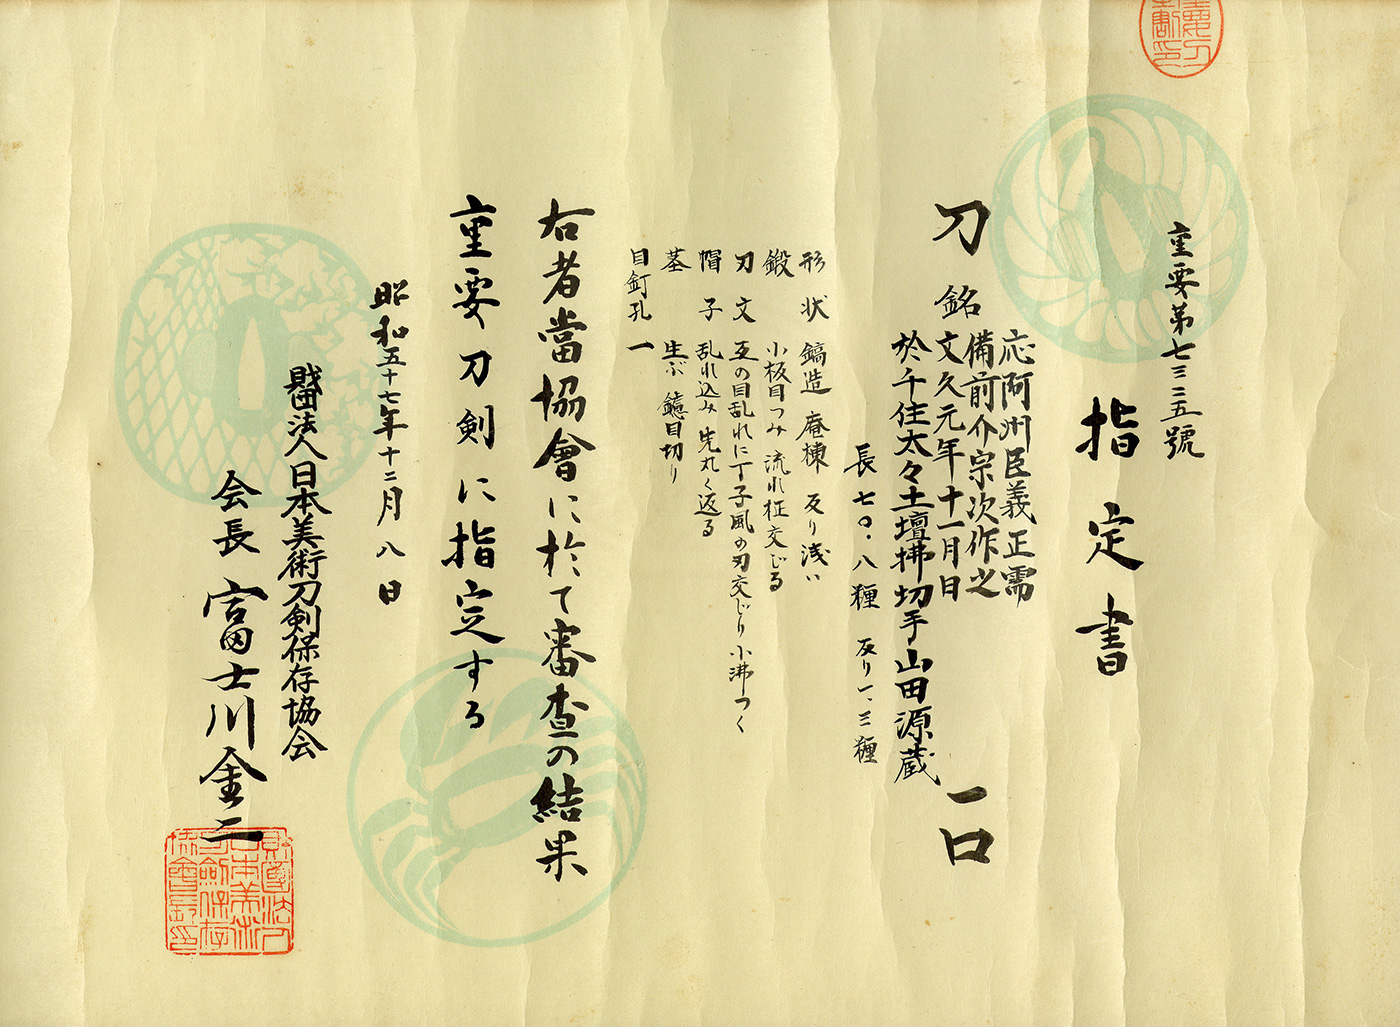 重要第七三三五號
指定書
刀 銘 応阿州臣義正需
備前介宗次作之
文久元年十一月日
於千住太々土壇拂切手山田源蔵
一口
長 七〇・八糎 反り一、三糎
形状 鎬造 庵棟 反り浅い
鍛 小板目つみ 流れ柾交じる
刃文 互の目乱れに丁子風の刃交じり小沸つく
帽子 乱れ込み 先丸く返る
茎 生ぶ 鑢目切り
目釘孔 一
右者當協會に於て審査の結果
重要刀剣に指定する
昭和五十七年十二月八日
財団法人日本美術刀剣保存協会
会長 富士川金二
財團法人日本美術刀劍保存協會會長印